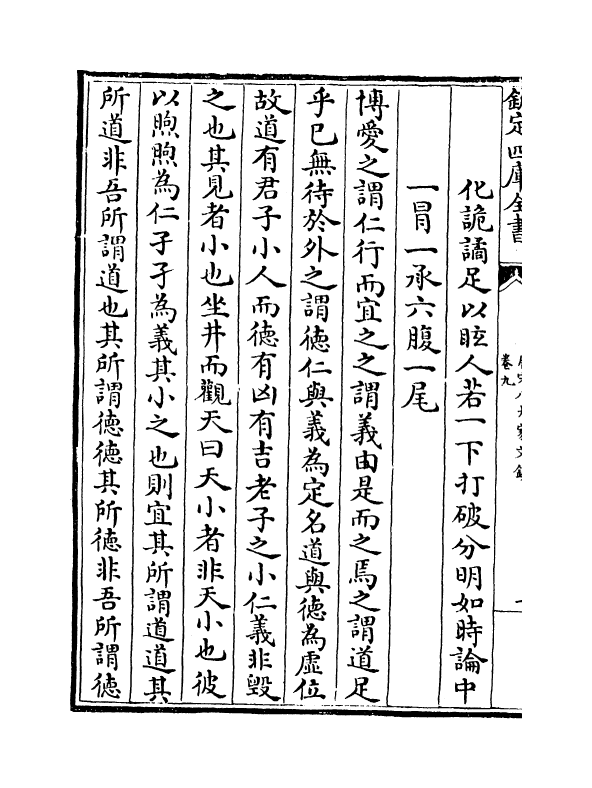 欽定四庫全書
卷九
化詭譎足以眩人若一下打破分明如時論中
一冒一承六腹一尾
博愛之謂仁行而宜之之謂義由是而之焉之謂道足
乎已無待於外之謂德仁與義為定名道與德為虛位
故道有君子小人而德有凶有吉老子之小仁義非毀
之也其見者小也坐井而觀天曰天小者非天小也彼
以煦煦為仁孑孑為義其小之也則宜其所謂道道其
所道非吾所謂道也其所謂德德其所德非吾所謂德